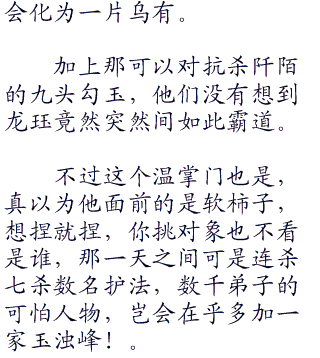 会化为一片乌有。
加上那可以对抗杀阡陌
的九头勾玉，他们没有想到
龙珏竟然突然间如此霸道。
不过这个温掌门也是，
真以为他面前的是软柿子，
想捏就捏，你挑对象也不看
是谁，那一天之间可是连杀
七杀数名护法，数千弟子的
可怕人物，岂会在乎多加一
家玉浊峰！。